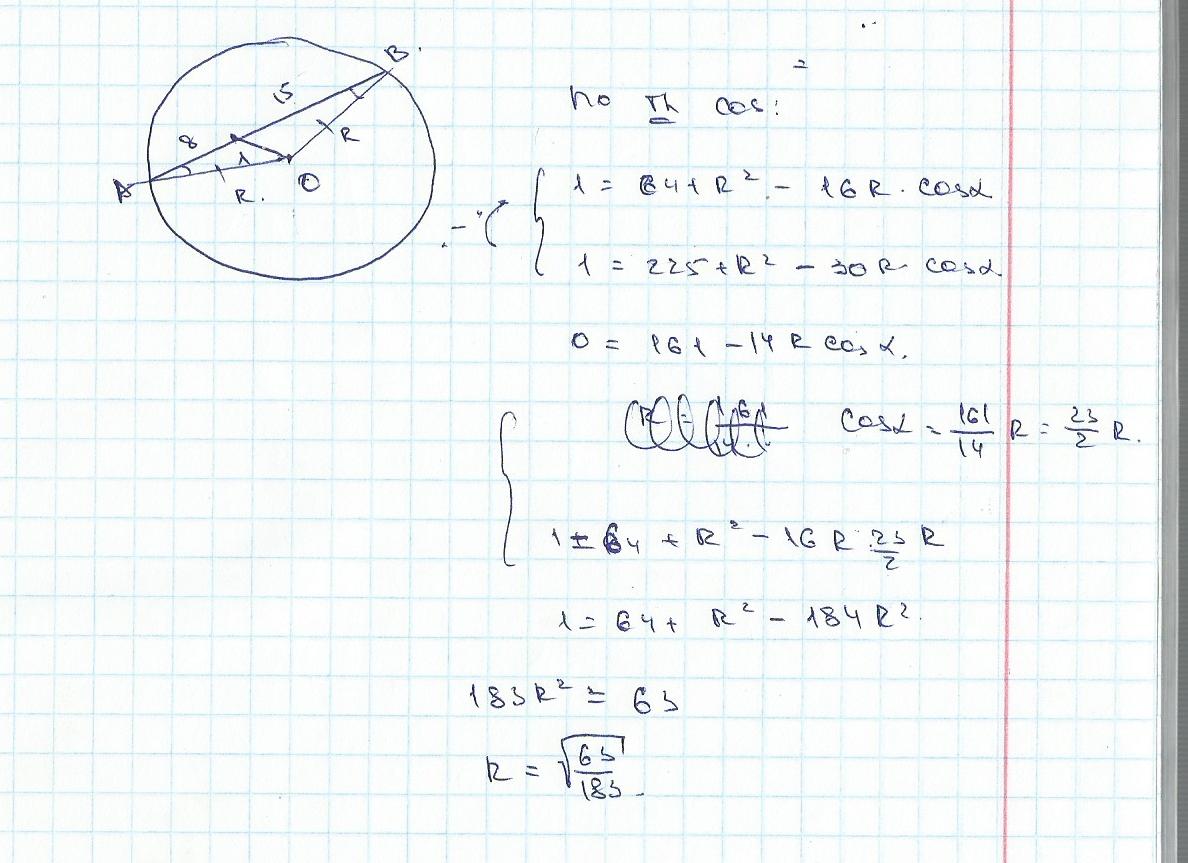 B.
15
8
R
1
A
R.
O
=
по Th cos:
1 = 64 + R² - 16R · cosα
1 = 225 + R² - 30R · cosα
0 = 161 - 14 R cos α.
cosα = 161/14 R = 23/2 R.
1 = 64 + R² - 16 R · 23/2 R
1 = 64 + R² - 184 R².
183R² = 63
R = √(63/183).